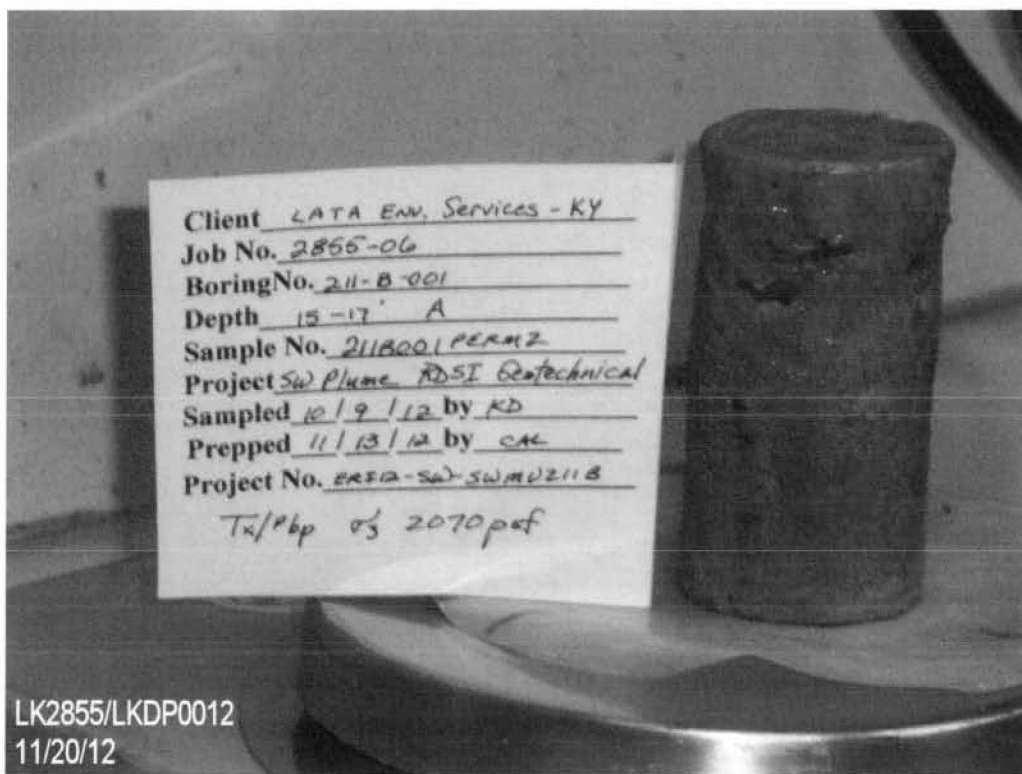 Client LATA Env. Services - KY
Job No. 2855-06
BoringNo. 211-B-001
Depth 15-17' A
Sample No. 211B001 PERM2
Project SW Plume RDSI Geotechnical
Sampled 10/9/12 by KD
Prepped 11/13/12 by CAL
Project No. ERI12-SW-SWMU211B
Tx/Pbp σ'3 2070 psf
LK2855/LKDP0012
11/20/12